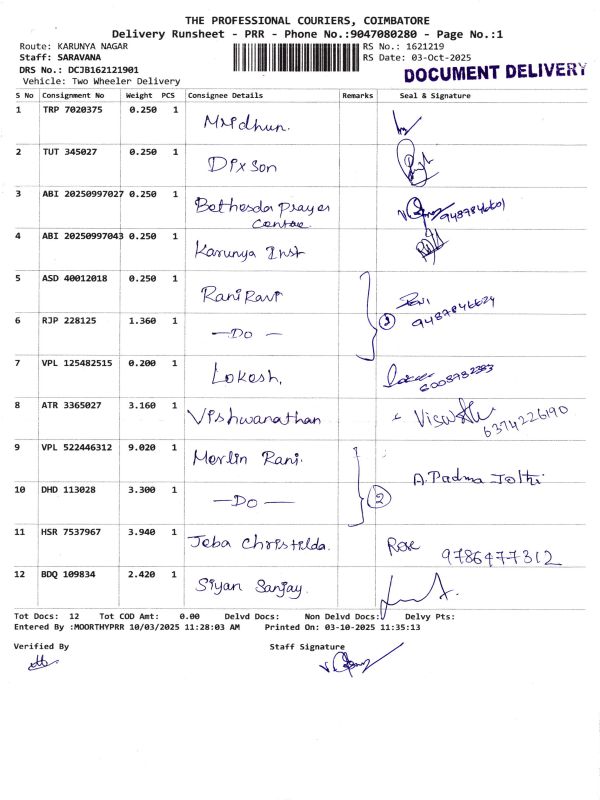 THE PROFESSIONAL COURIERS, COIMBATORE
Delivery Runsheet - PRR - Phone No.:9047080280 - Page No.:1
Route: KARUNYA NAGAR RS No.: 1621219
Staff: SARAVANA RS Date: 03-Oct-2025
DRS No.: DCJB162121901 DOCUMENT DELIVERY
Vehicle: Two Wheeler Delivery
S No Consignment No Weight PCS Consignee Details Remarks Seal & Signature
1 TRP 7020375 0.250 1 Mridhun.
2 TUT 345027 0.250 1 Dixson
3 ABI 20250997027 0.250 1 Bethesda Prayer
Centre
4 ABI 20250997043 0.250 1 Karunya Inst
5 ASD 40012018 0.250 1 Rani Ravi
9487846624
6 RJP 228125 1.360 1 —Do—
7 VPL 125482515 0.200 1 Lokesh.
8 ATR 3365027 3.160 1 Vishwanathan
6374226190
9 VPL 522446312 9.020 1 Merlin Rani.
A. Padma Jothi
10 DHD 113028 3.300 1 —Do— 2
11 HSR 7537967 3.940 1 Jeba Christilda. Rose 9786477312
12 BDQ 109834 2.420 1 Siyan Sanjay.
Tot Docs: 12 Tot COD Amt: 0.00 Delvd Docs: Non Delvd Docs: Delvy Pts:
Entered By :MOORTHYPRR 10/03/2025 11:28:03 AM Printed On: 03-10-2025 11:35:13
Verified By Staff Signature